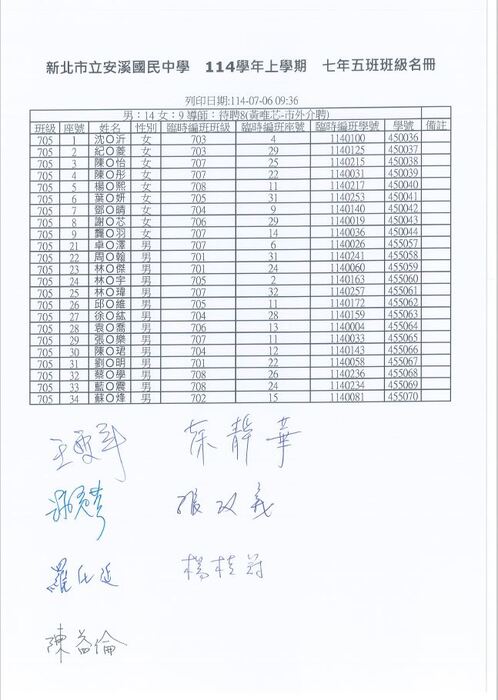 新北市立安溪國民中學 114學年上學期 七年五班班級名冊
列印日期:114-07-06 09:36
男：14 女：9 導師：待聘8(黃唯芯-市外介聘)
班級 座號 姓名 性別 臨時編班班級 臨時編班座號 臨時編班學號 學號 備註
705 1 沈○沂 女 703 4 1140100 450036
705 2 紀○菱 女 703 29 1140125 450037
705 3 陳○怡 女 707 25 1140215 450038
705 4 陳○彤 女 707 22 1140031 450039
705 5 楊○熙 女 708 11 1140217 450040
705 6 葉○妍 女 705 31 1140253 450041
705 7 鄧○晴 女 704 9 1140140 450042
705 8 謝○芯 女 706 29 1140019 450043
705 9 龔○羽 女 707 14 1140036 450044
705 21 卓○澤 男 707 6 1140026 455057
705 22 周○翰 男 701 31 1140241 455058
705 23 林○傑 男 701 24 1140060 455059
705 24 林○宇 男 705 2 1140163 455060
705 25 林○瑋 男 707 32 1140257 455061
705 26 邱○維 男 705 11 1140172 455062
705 27 徐○紘 男 704 28 1140159 455063
705 28 袁○喬 男 706 13 1140004 455064
705 29 張○樂 男 707 11 1140033 455065
705 30 陳○珺 男 704 12 1140143 455066
705 31 劉○明 男 701 22 1140058 455067
705 32 蔡○學 男 708 26 1140236 455068
705 33 藍○震 男 708 24 1140234 455069
705 34 蘇○烽 男 702 15 1140081 455070
余靜華
張以義
楊桂芬
陳益倫